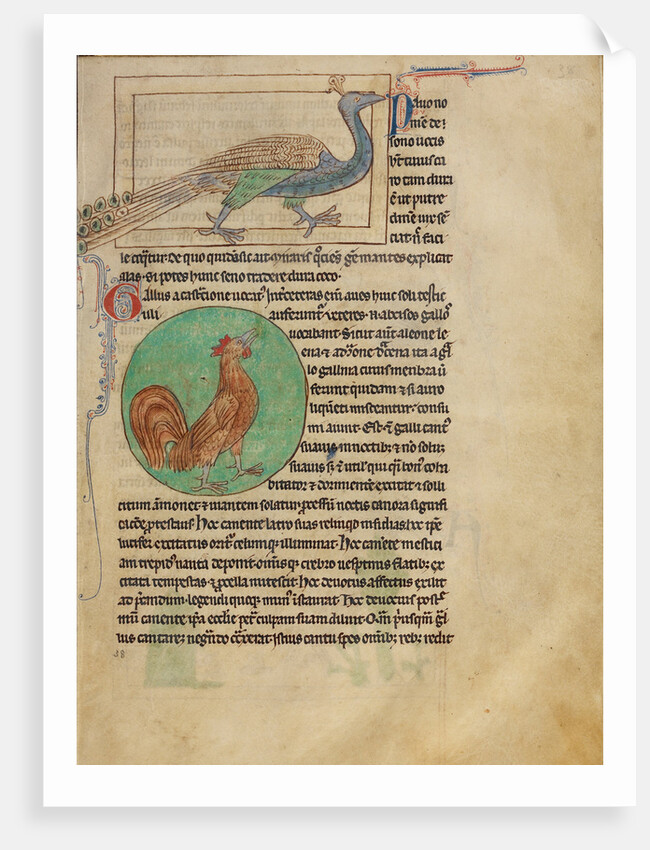 38
Pauo no
me de
sono uocis
h't cuius ca
ro tam dura
e ut putre
dinem uix se
ciat n faci
le coquitur. De quo quidam sic ait. Miraris quociens gemmantes explicat
alas. Si potes hunc seuo tradere dura coco.
Gallus a castcione uocatˀ Inter ceteras eni aues huic soli testic
uli auferuntˀ ueteres. N abscisos gallos
uocabant. Sicut aut a leone le
ena & a dracone dracena ita a gal
lo gallina cuius membra ut
ferunt quidam & si auro
liquenti misceantur. consu
mi aiunt. Est & galli cantˀ
suauis in noctibˀ & no solum
suauis sed & utilˀ qui ut bonˀ coha
bitator & dormiente excitat & solli
citum amonet & uiantem solatur pcessum noctis canora signifi
catione ptestans. Hoc canente latro suas relinquid insidias. hoc ipse
lucifer excitatus oritˀ celumque illuminat. Hoc canente mestici
am trepidˀ nauta deponit. omnisque crebro uespertinis flatibˀ ex
citati tempestas & pcella mitescit. Hoc deuotus affectus exilit
ad pcandum. legendi quoque munˀ instaurat. Hoc deuocius postre
mum canente ipsa ecclesie petra culpam suam diluit. Quam priusquam gal
lus cantaret negando contraxerat. Istius cantu spes omnibˀ rebˀ redit
38